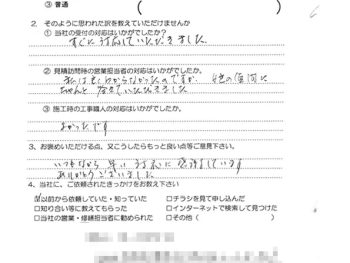 ③ 普通 (
2. そのように思われた訳を教えていただけませんか
① 当社の受付の対応はいかがでしたか。
すぐに対応していただきました。
② 見積訪問時の営業担当者の対応はいかがでしたか。
私はよくわからなかったのですが、の質問に
ちゃんと答えていただきました
③ 施工時の工事職人の対応はいかがでしたか。
よかったです
3、お褒めいただける点、又こうしたらもっと良い点等ご意見下さい。
いつもながら早い対応に感謝しています
ありがとうございました
4、当社に、ご依頼されたきっかけをお教え下さい
以前から依頼していた・知っていた □チラシを見て申し込んだ
□知り合い等に教えてもらった □インターネットで検索して見つけた
□当社の営業・修繕担当者に勧められた □その他( )